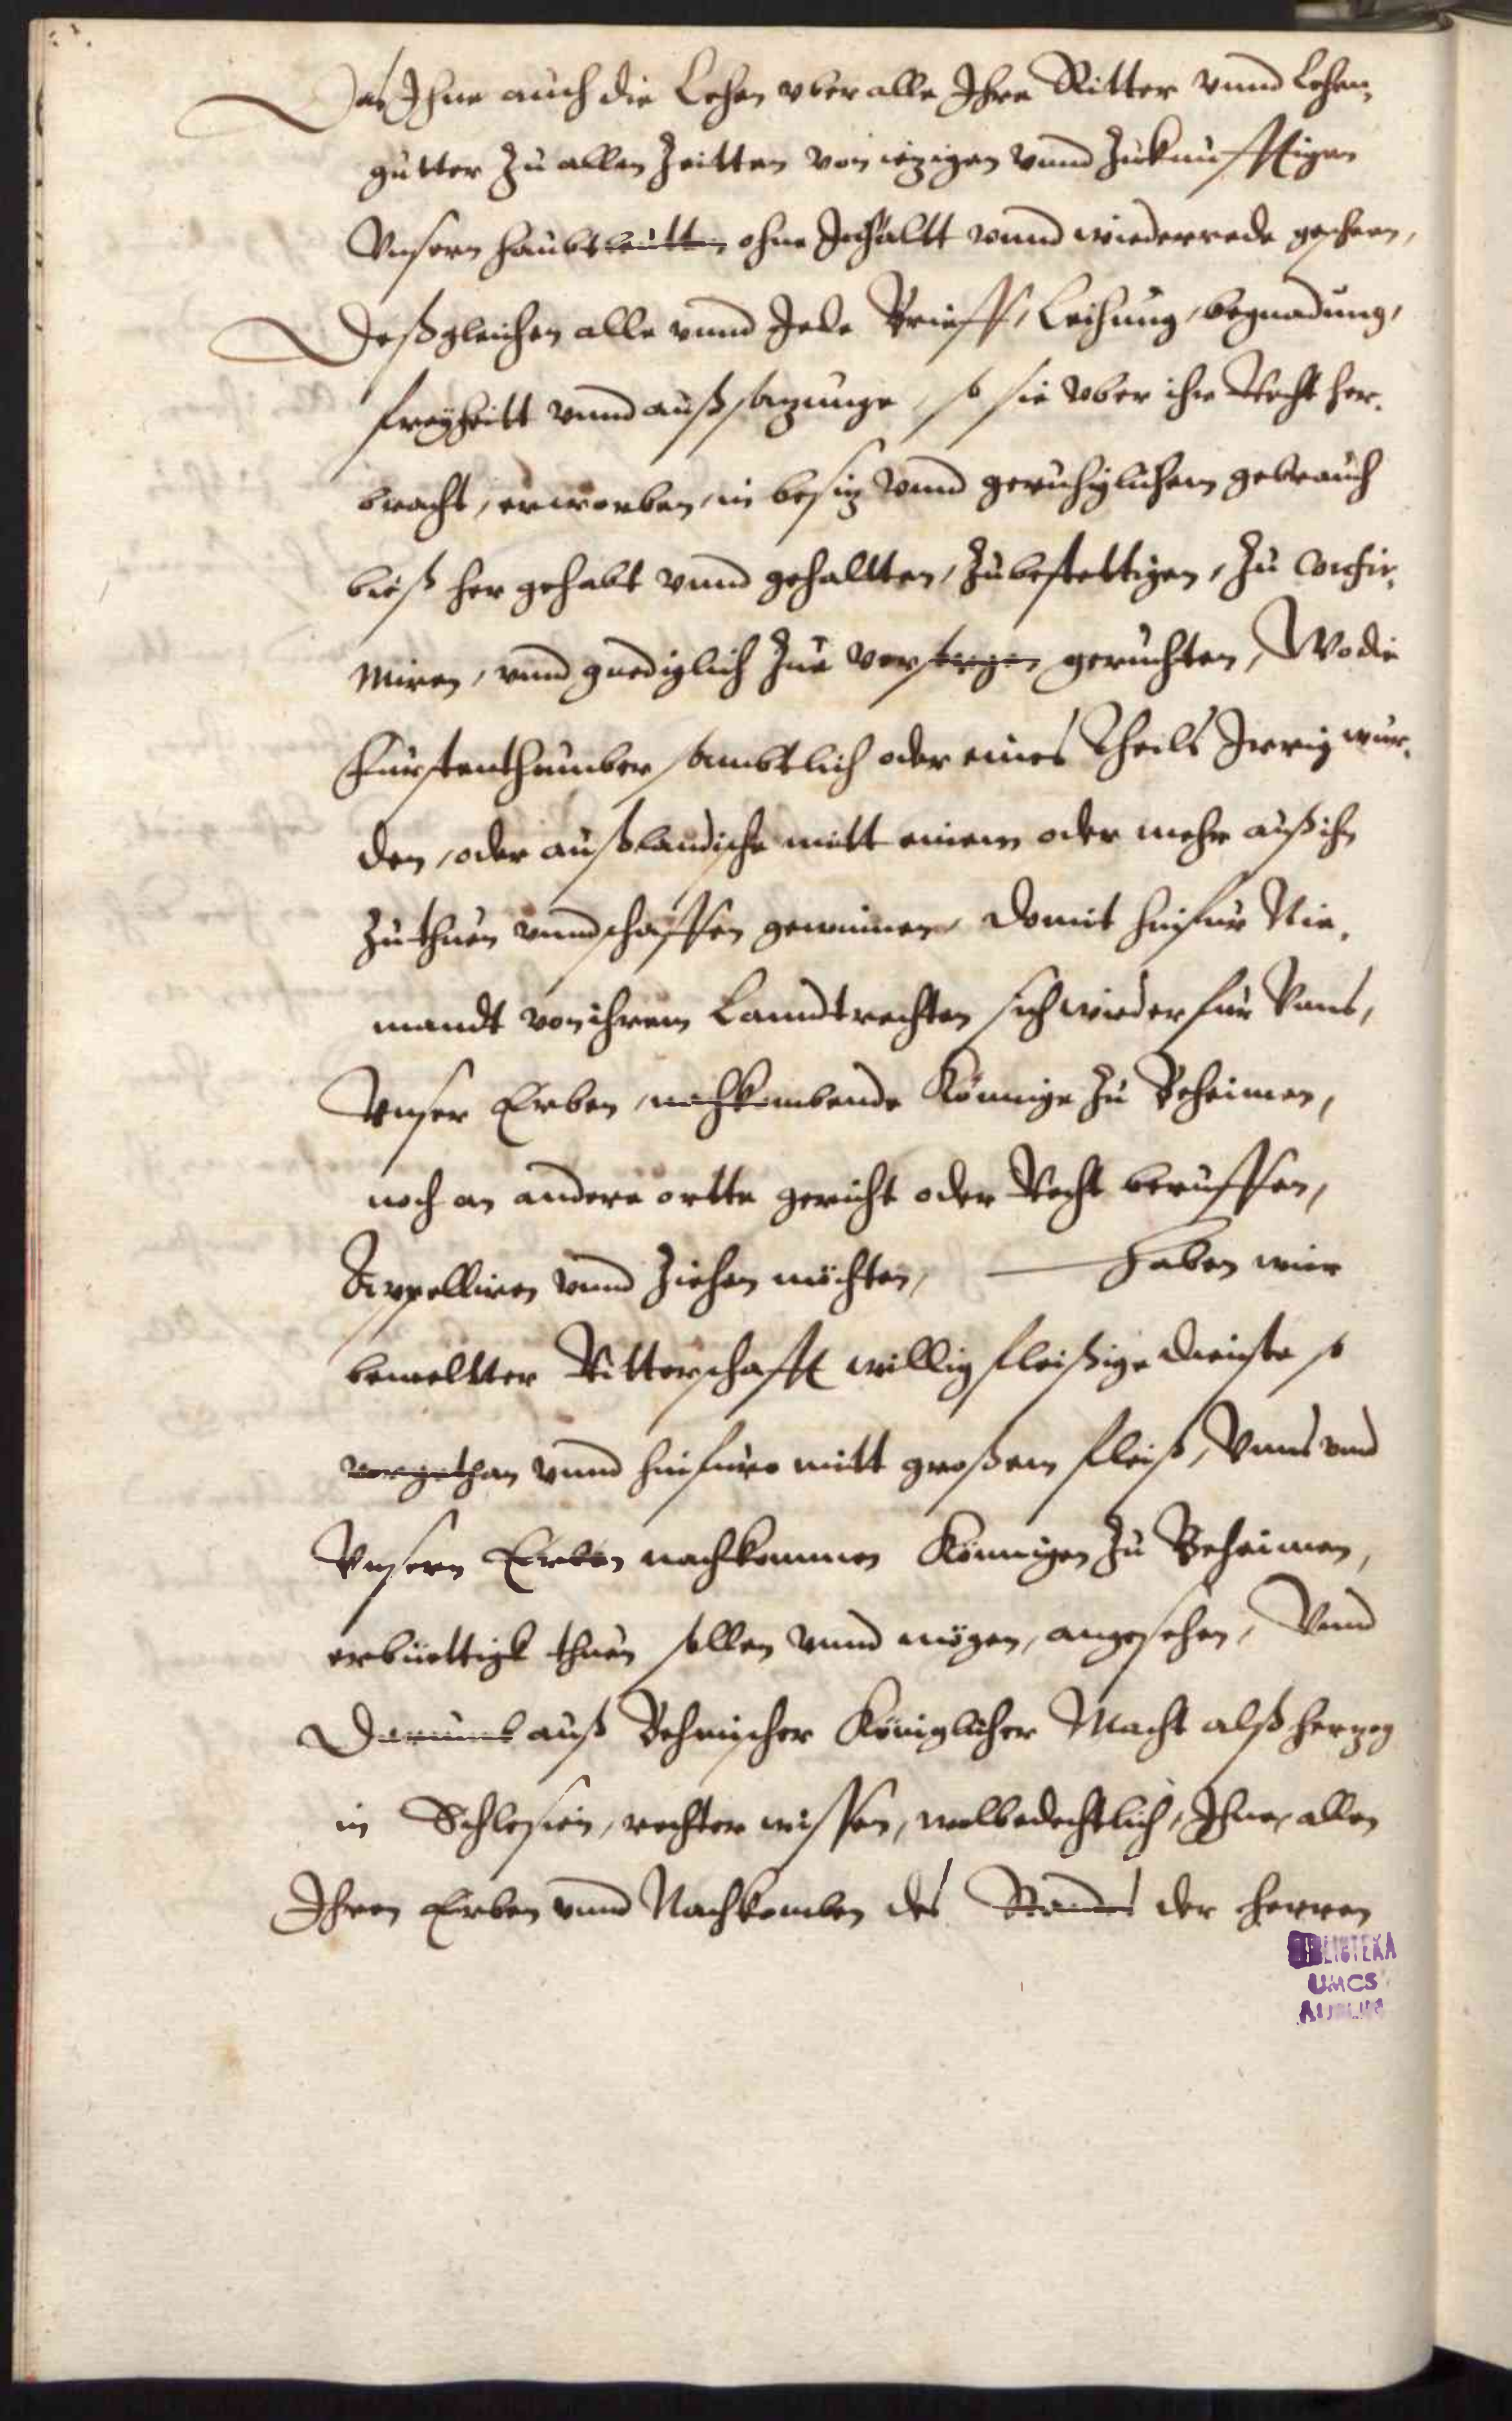 Das Ihne auch die Lehen vber alle Ihre Ritter vnnd Lehen
gutter Zu allen Zeitten von iezigen vnnd Zukunfftigen
Vnsern haubtleutten ohne Inhaltt vnnd wiederrede gescheen,
Deßgleichen alle vnnd Jede Brieff, Leihung, begnadung,
freyheitt vnnd außsazunge, so sie vber ihre Recht her.
bracht, erworben, in besiz vnnd geruhiglichem gebrauch
bieß her gehabt vnnd gehallten, Zubestettigen, Zu Confir.
miren, vnnd gnediglich Zue versorgen geruchten, Wo die
Fürstenthumber sambtlich oder eines Theils Irrig wur.
den, oder außlandische mitt einem oder mehr auß ihn
Zuthuen vnnd schaffen gewinnen, Domit hinfur Nie.
mandt von ihrem Lanndtrechten sich wieder fur Vnns,
Vnser Erben, nachkombende Könnige Zu Beheimen,
noch an andere ortte gericht oder Recht beruffen,
Appelliren vnnd Ziehen möchten, Haben wier
bemeltter Ritterschafft willig fleißige dienste so
vorgethan vnnd hinfuro mitt großem fleiß, Vnns vnd
Vnsern Erben nachkommen Könnigen Zu Beheimen,
erbüettigk thuen sollen vnnd mögen, angesehen, Vnnd
Darumb auß Behmischer Königlicher Macht alß herzog
in Schlesien, rechter wissen, wolbedechtlich, Ihne, allen
Ihren Erben vnnd Nachkomben des Standes der herren
BIBLIOTEKA
UMCS
LUBLIN